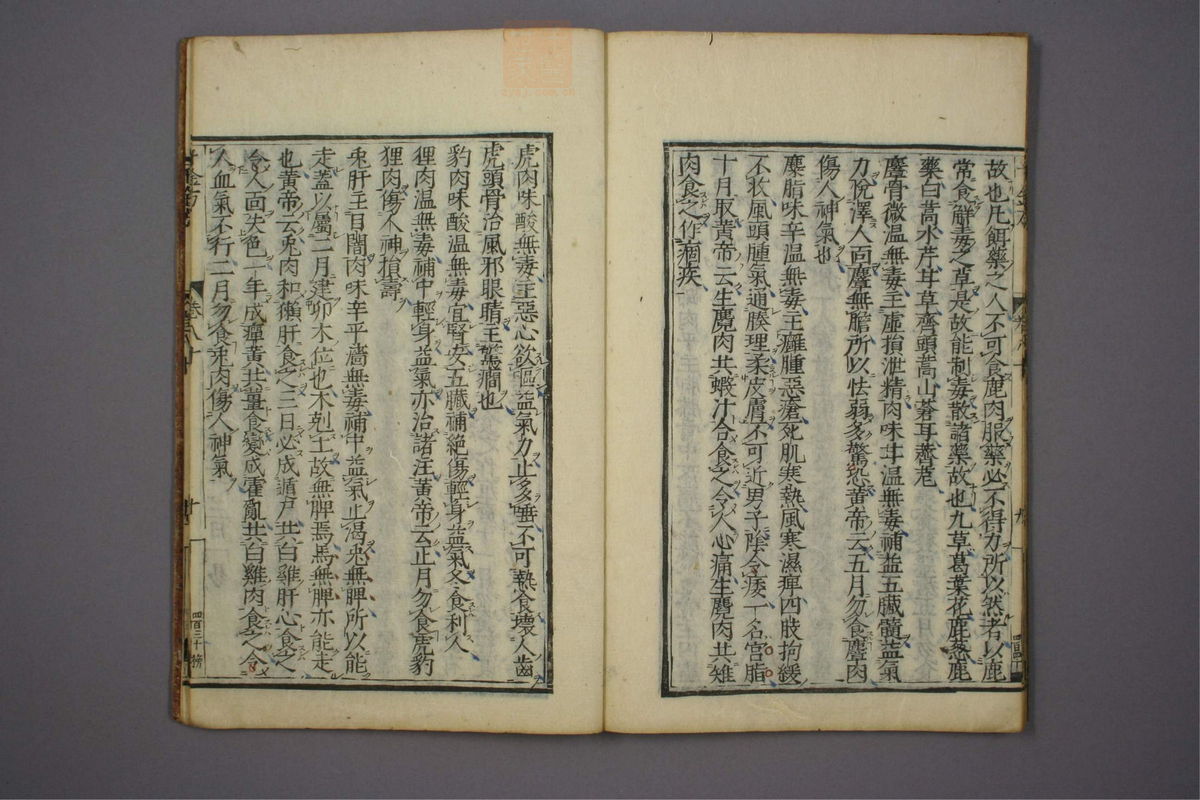 故也凡餌藥之人不可食鹿肉服藥必不得力所以然者以鹿
常食解毒之草是故能制毒散諸藥故也九草葛葉花鹿葱鹿
藥白蒿水芹甘草齊頭蒿山蒼耳薺苨
麞骨微温無毒主虛損泄精肉味甘温無毒補益五臓髓益氣
力悅澤人面麞無膽所以怯弱多驚恐黄帝云五月勿食麞肉
傷人神氣也
麋脂味辛温無毒主癰腫惡瘡死肌寒熱風寒濕痺四肢拘緩
不收風頭腫氣通腠理柔皮膚不可近男子陰令痿一名宫脂
十月取黄帝云生麑肉共蝦汁合食之令人心痛生麑肉共雉
肉食之作痼疾
虎肉味酸無毒主惡心欲嘔益氣力止多唾不可熱食壞人齒
虎頭骨治風邪眼睛主驚癇也
豹肉味酸温無毒宜腎安五臓補絶傷輕身益氣冬食利人
狸肉温無毒補中輕身益氣亦治諸注黄帝云正月勿食虎豹
狸肉傷人神損壽
兎肝主目闇肉味辛平濇無毒補中益氣止渴兎無脾所以能
走蓋以屬二月建卯木位也木剋土故無脾焉馬無脾亦能走
也黄帝云兎肉和獺肝食之三日必成遁尸共白雞肝心食之
令人面失色一年成癉黄共薑食變成霍亂共白雞肉食之令
人血氣不行二月勿食兎肉傷人神氣
千金方
卷八十
十
四百三十